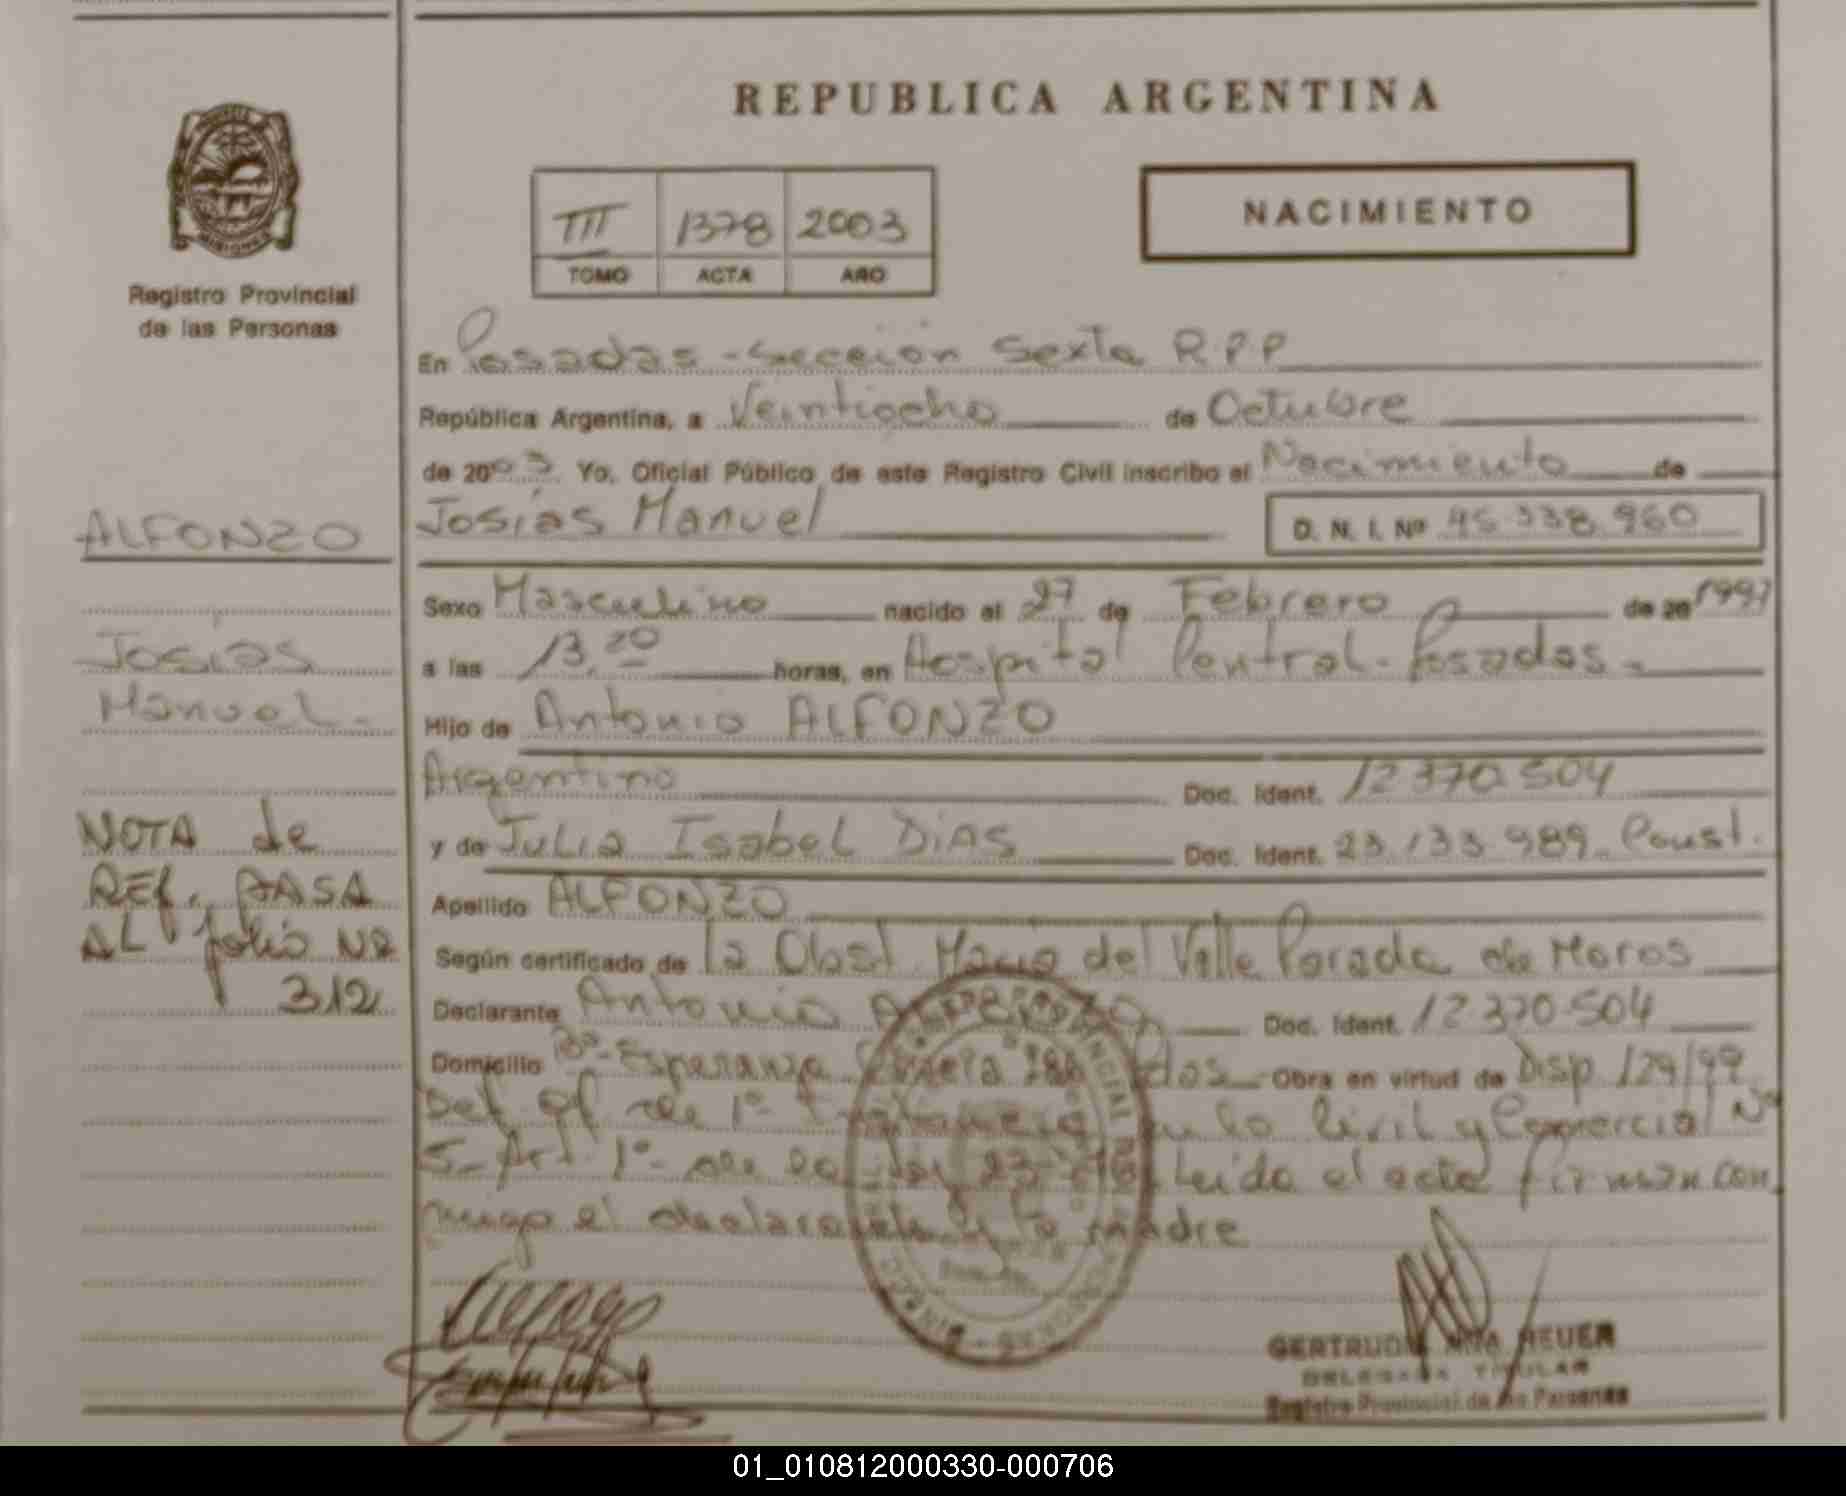 REPUBLICA ARGENTINA
MISIONES
Registro Provincial
de las Personas
III 1378 2003
TOMO ACTA AÑO
NACIMIENTO
En Posadas - Sección Sexta R.P.P
República Argentina, a Veintiocho de Octubre
de 2003 Yo, Oficial Público de este Registro Civil inscribo el Nacimiento de
Josías Manuel
D. N. I. Nº 45.338.960
ALFONZO
Josías
Manuel.-
NOTA de
REf. PASA
AL folio Nº
312
Sexo Masculino nacido el 27 de Febrero de 20 1997
a las 13.20 horas, en Hospital Central - Posadas.-
Hijo de Antonio ALFONZO
Argentino Doc. Ident. 12.370.504
y de Julia Isabel DIAS Doc. Ident. 23.133.989
Apellido ALFONZO
Según certificado de la Obst. María del Valle Parada de Moros
Declarante Antonio Doc. Ident. 12.370.504
Domicilio Bº Esperanza Obra en virtud de Disp 129/99
Def. Of de 1º en lo Civil y Comercial Nº
5 - Art 1º de la ley Leido el acta firman con
migo el declarante y la madre
GERTRUDIS ANA HEUER
DELEGADA TITULAR
Registro Provincial de las Personas
01_010812000330-000706